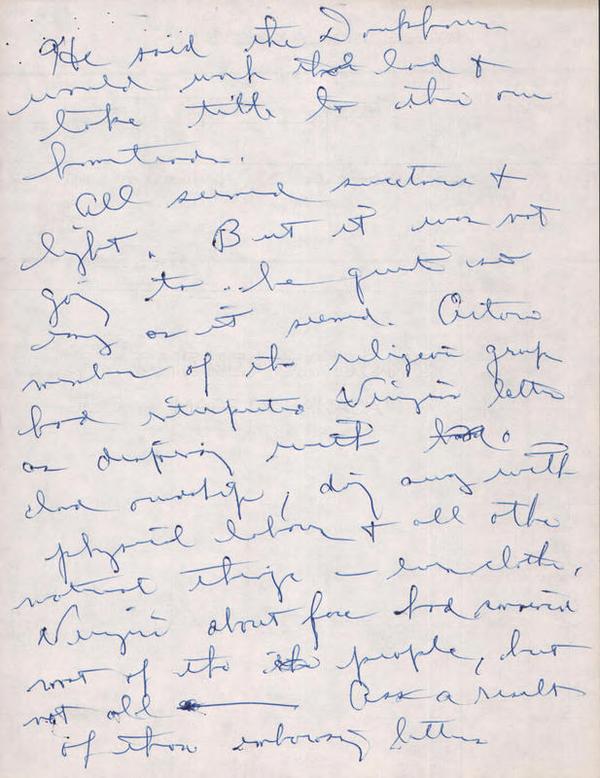 He said the Doukhobours
would work the land &
take title to their own
homesteads.
All seemed sweetness &
light. But it was not
going to be quite so
easy as it seemed. Certain
members of the religious group
had interpreted Verigin's letters
as dispensing with
land ownership, doing away with
physical labour & all other
material things – even clothes.
Verigin's about face had swayed
most of the people, but
not all As a result
of those letters